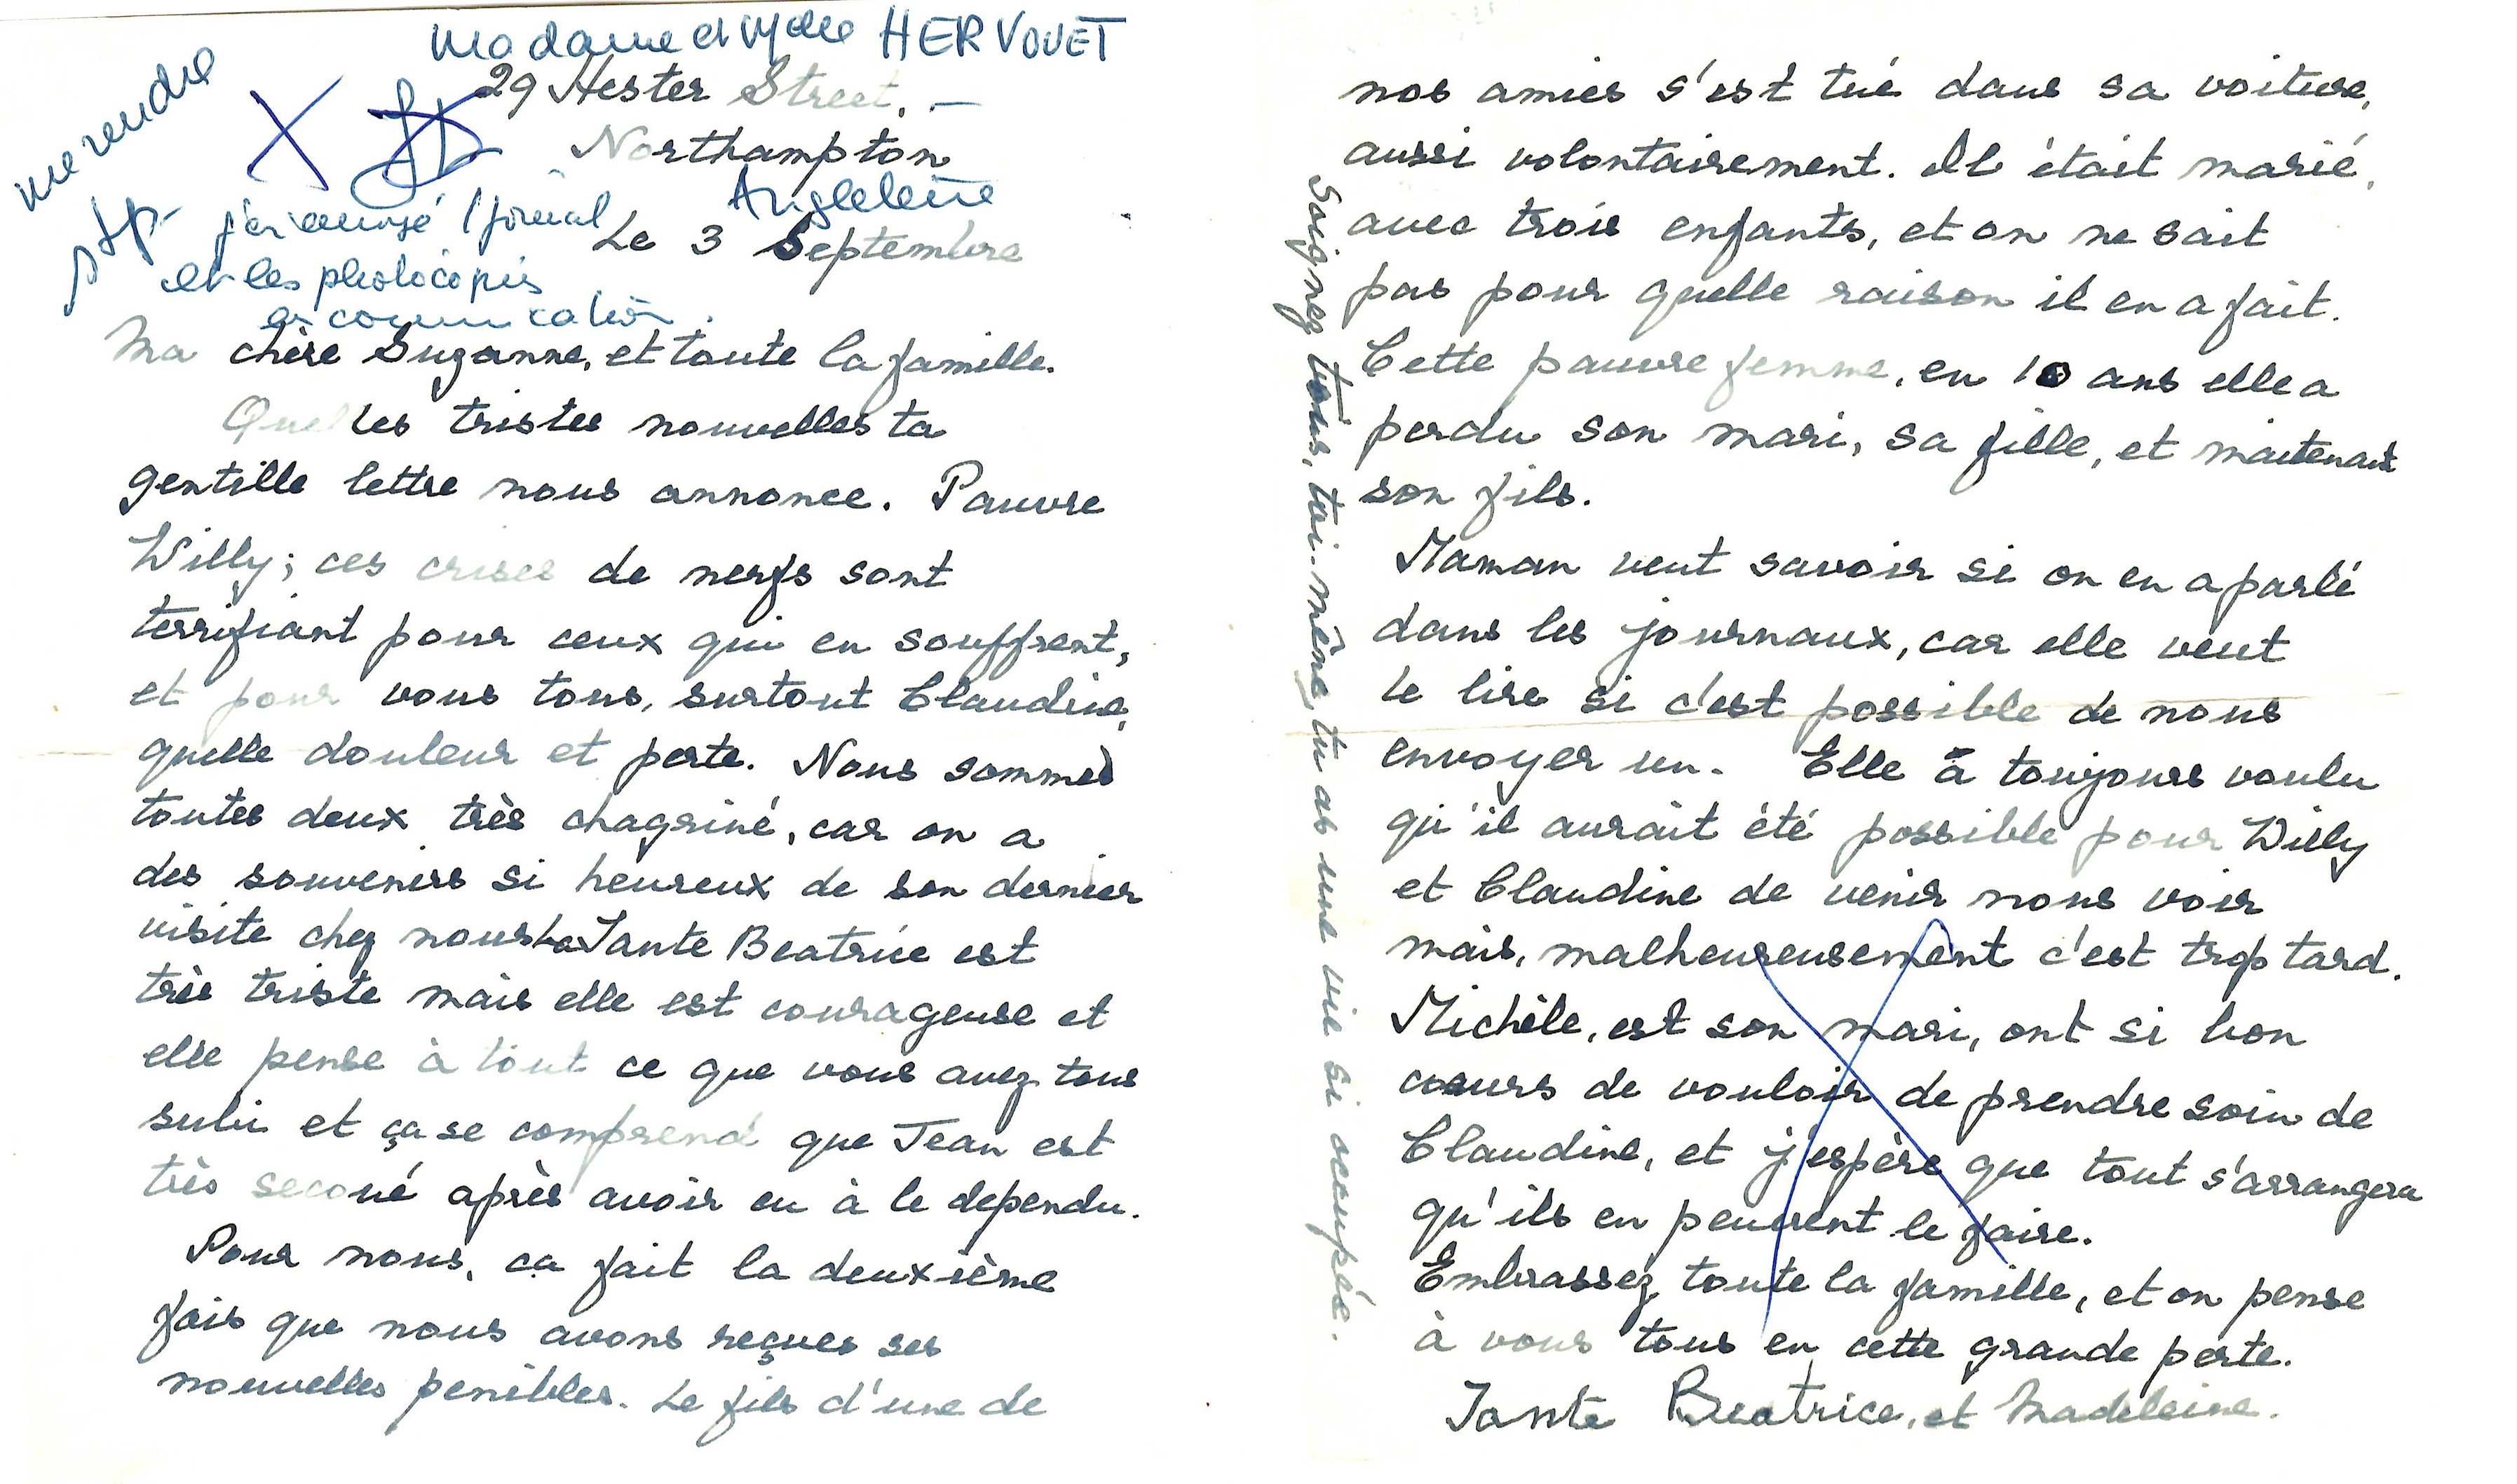 Madame et Melle HERVOUET
29 Hester Street,
Northampton
Angleterre
Le 3 Septembre
me rendre
stp
j'ai envoyé l'
et les photocopies
en communication.
Ma chère Suzanne, et toute la famille.
Quelles tristes nouvelles ta
gentille lettre nous annonce. Pauvre
Willy; ces crises de nerfs sont
terrifiant pour ceux qui en souffrent,
et pour vous tous, surtout Claudine,
quelle douleur et perte. Nous sommes
toutes deux très chagriné, car on a
des souvenirs si heureux de son dernier
visite chez nous. La Tante Beatrice est
très triste mais elle est courageuse et
elle pense à tout ce que vous avez tous
subi et ça se comprend que Jean est
très secoué après avoir eu à le dependu.
Pour nous, ca fait la deuxième
fois que nous avons reçues ses
nouvelles penibles. Le fils d'une de
nos amies s'est tué dans sa voiture,
aussi volontairement. Il était marié,
avec trois enfants, et on ne sait
pas pour quelle raison il en a fait.
Cette pauvre femme, en 10 ans elle a
perdu son mari, sa fille, et maitenant
son fils.
Maman veut savoir si on en a parlé
dans les journaux, car elle veut
le lire si c'est possible de nous
envoyer un. Elle a toujours voulu
qu'il aurait été possible pour Willy
et Claudine de venir nous voir
mais, malheureusement c'est trop tard.
Michèle, est son mari, ont si bon
cœurs de vouloir de prendre soin de
Claudine, et j'espère que tout s'arrangera
qu'ils en peuvent le faire.
Embrassez toute la famille, et on pense
à vous tous en cette grande perte.
Tante Beatrice, et Madeleine.
Soignez tous, toi-même, tu as une vie si occupée.